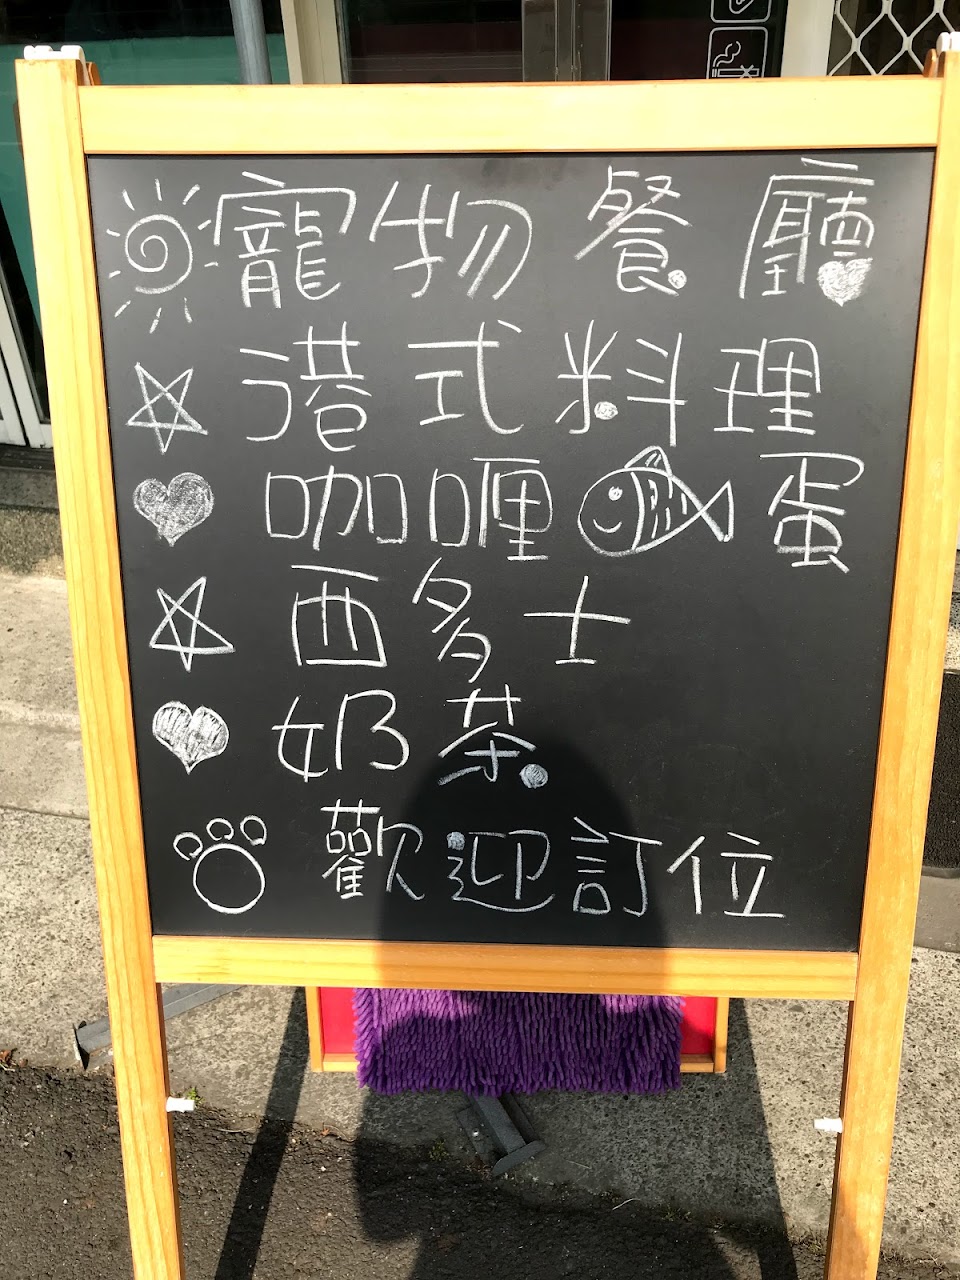 寵物餐廳
港式料理
咖喱蛋
西多士
奶茶
歡迎訂位